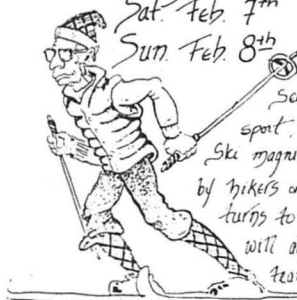 Sat. Feb. 7th
Sun. Feb. 8th
sport,
Ski magni
by hikers
turns to
will